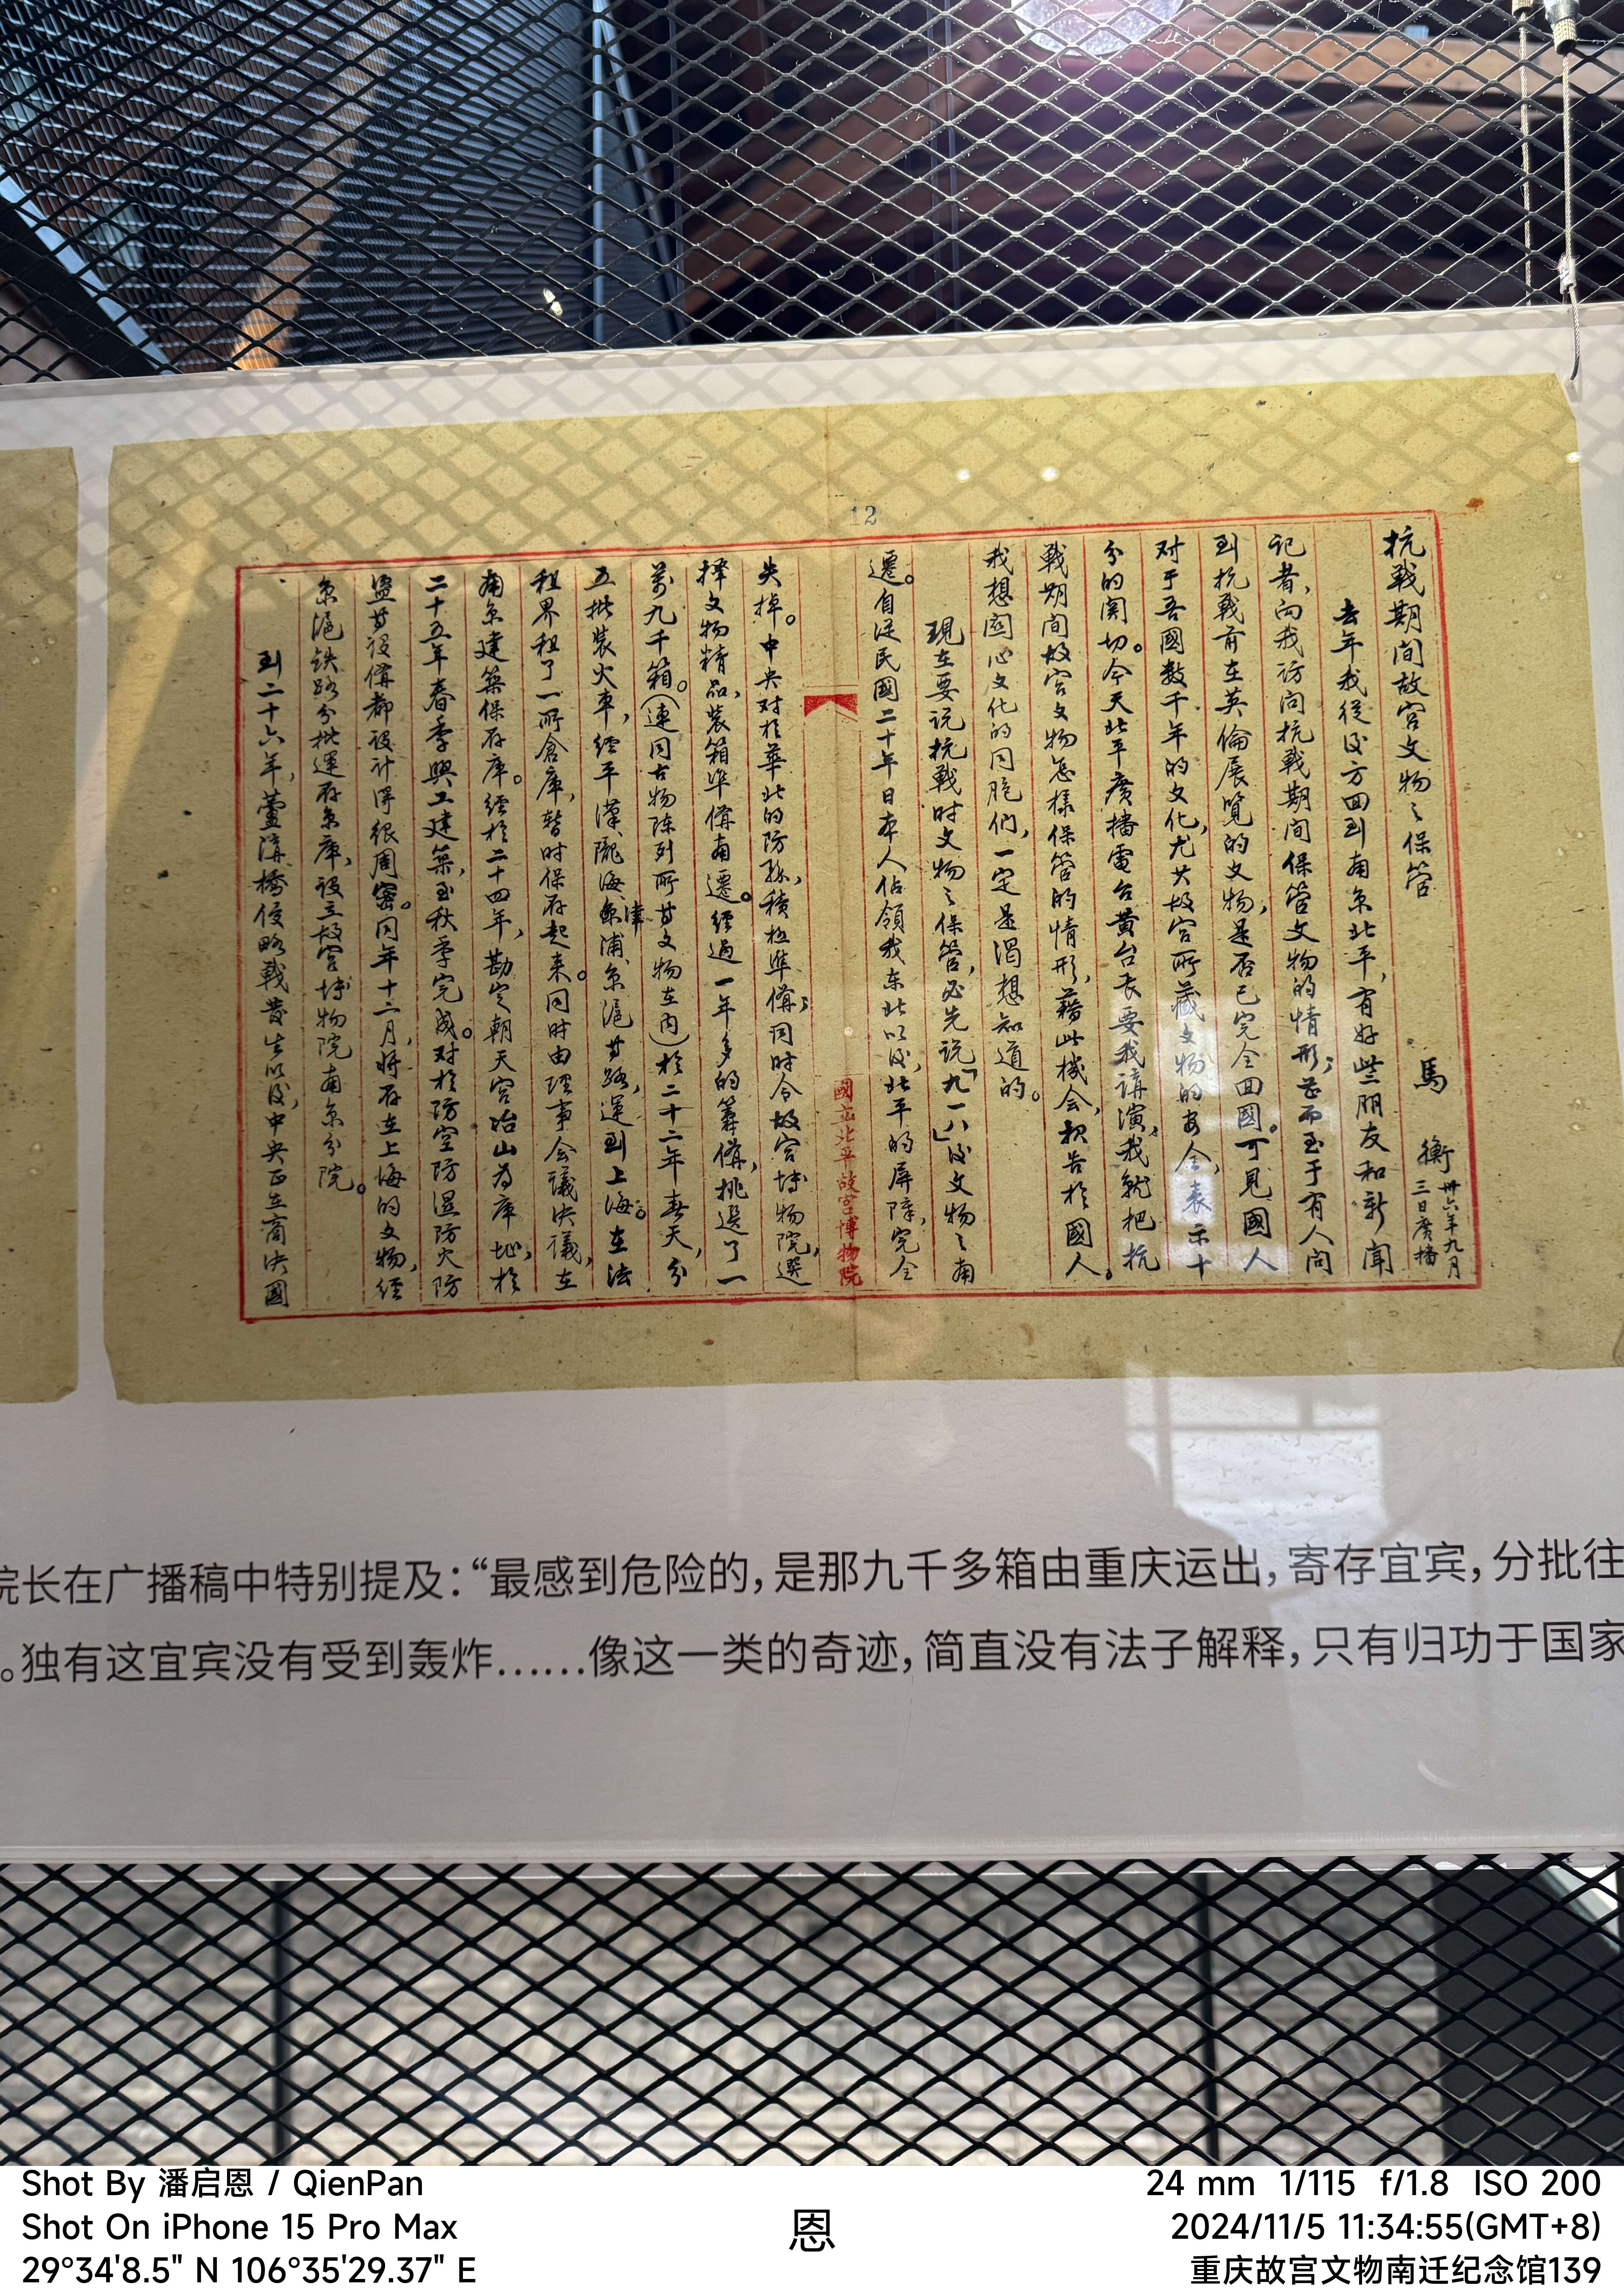 12
抗戰期間故宮文物之保管
馬衡
卅六年九月
三日廣播
去年我從后方回到南京北平，有好些朋友和新聞
记者，向我访问抗戰期间保管文物的情形；甚而至于有人问
到抗戰前在英倫展览的文物，是否已完全回國。可見國人
对于吾國数千年的文化，尤其故宮所藏文物的安全，表示十
分的関切。今天北平廣播電台黄台长要我講演，我就把抗
戰期间故宮文物怎樣保管的情形，藉此機会，报告於國人。
我想関心文化的同胞们，一定是渴想知道的。
現在要说抗戰时文物之保管，必先说「九一八」后文物之南
遷。自従民國二十年日本人佔領我东北以后，北平的屏障，完全
國立北平故宮博物院
失掉。中央对於華北的防務，積极準俻；同时令故宮博物院，選
擇文物精品，装箱準俻南遷。经過一年多的籌俻，挑選了一
萬九千箱。（連同古物陈列所等文物在内）於二十二年春天，分
五批装火車，经平漢、隴海、津浦、京滬等路，運到上海。在法
租界租了一所倉库，暂时保存起来。同时由理事会議决議，在
南京建築保存库。经於二十四年，勘定朝天宮冶山为库址，於
二十五年春季興工建築，至秋季完成。对於防空防濕防火防
盗等设俻都设计得很周密。同年十二月，将存在上海的文物，经
京滬铁路分批運存京库，设立故宮博物院南京分院。
到二十六年，蘆溝橋侵略戰发生以后，中央正在商决國
院长在广播稿中特别提及：“最感到危险的，是那九千多箱由重庆运出，寄存宜宾，分批往
。独有这宜宾没有受到轰炸……像这一类的奇迹，简直没有法子解释，只有归功于国家
Shot By 潘启恩 / QienPan
Shot On iPhone 15 Pro Max
29°34'8.5" N 106°35'29.37" E
恩
24 mm 1/115 f/1.8 ISO 200
2024/11/5 11:34:55(GMT+8)
重庆故宫文物南迁纪念馆139